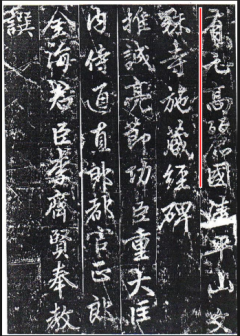 有元高麗國清平山文
殊寺施藏經碑
推誠亮節功臣重大匡
內侍通直郎都官正郎
金海君臣李齊賢奉教
撰